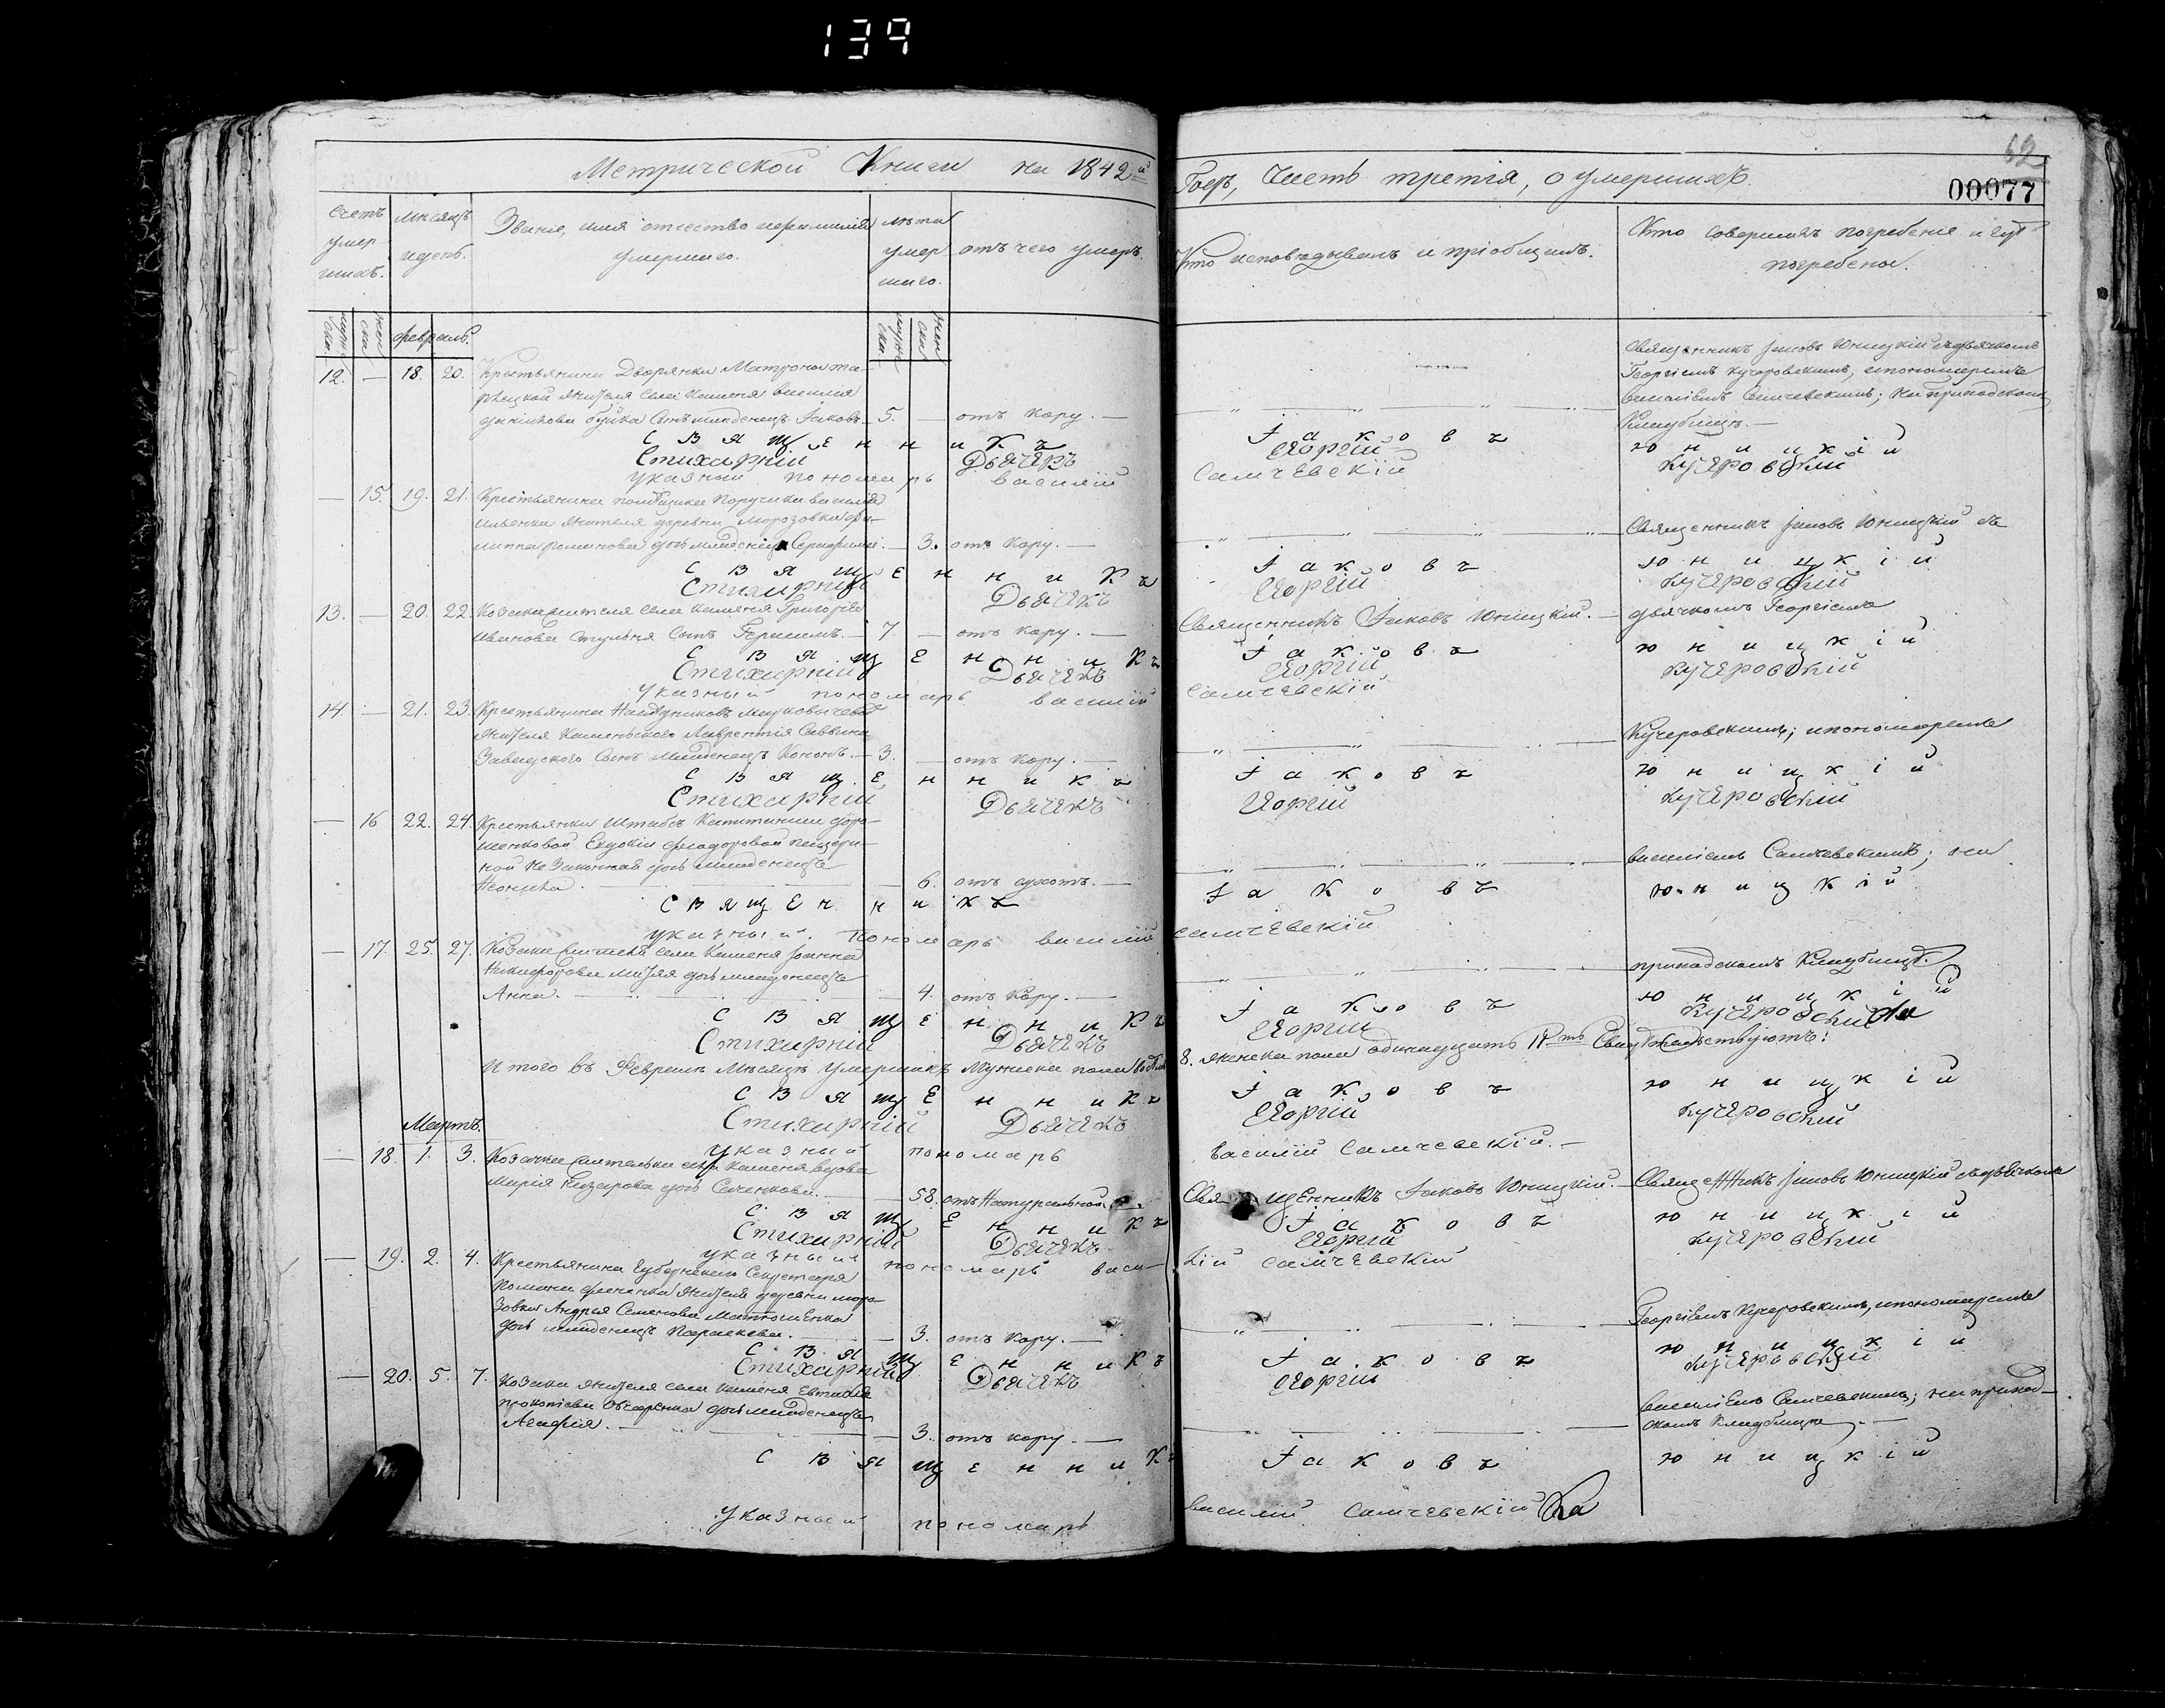 139
Метрической Книги на 1842й
Годъ, Часть третія, о умершихъ.
62
00077
Счетъ умершихъ.
мѣсяцъ и день.
Званіе, имя отчество и фамилія умершаго.
лѣта умершаго.
отъ чего умеръ.
Кто исповѣдывалъ и пріобщалъ.
Кто совершалъ погребеніе и гдѣ погребены.
Февраль.
12. — 18. 20. Крестьянина Дворянки Матроны
жителя села Каменя василія
сынъ младенецъ Іаковъ. 5. — отъ кору. —
Священникъ Іаковъ Юницкій съ дьячкомъ
Георгіемъ Кучеровскимъ, и пономаремъ
василіемъ Самчевскимъ; на приходскомъ
Кладбищѣ. —
Священникъ Іаковъ Юницкій
Стихарный Дьячекъ Георгій Кучеровскій
указный пономарь василій Самчевскій
— 15. 19. 21. Крестьянина помѣщика Поручика василія
жителя деревни Морозовки Фи-
липпа романова дочь младенецъ Серафима. — 3. отъ кору. —
Священникъ Іаковъ Юницкій съ
Священникъ Іаковъ Юницкій
Стихарный Дьячекъ Георгій Кучеровскій
13. — 20. 22. Козака жителя села Каменя Григорія
Иванова сынъ Герасимъ. — 7 — отъ кору. — Священникъ Іаковъ Юницкій. — дьячкомъ Георгіемъ
Священникъ Іаковъ Юницкій
Стихарный Дьячекъ Георгій Кучеровскій
указный пономарь василій Самчевскій
14. — 21. 23. Крестьянина
жителя Каменского Лаврентія Саввина
Завадского сынъ младенецъ Кононъ. — 3. — отъ кору. — Кучеровскимъ; и пономаремъ
Священникъ Іаковъ Юницкій
Стихарный Дьячекъ Георгій Кучеровскій
— 16 22. 24. Крестьянки Штабсъ Капитанши
Евдокіи Феодоровой
не законная дочь младенецъ
6. отъ сухотъ. — василіемъ Самчевскимъ; на
Священникъ Іаковъ Юницкій
указный пономарь василій Самчевскій
— 17. 25. 27. Козака жителя села Каменя Іоанна
Никифорова дочь младенецъ
Анна. — 4. отъ кору. — приходскомъ Кладбищѣ.
Священникъ Іаковъ Юницкій
Стихарный Дьячекъ Георгій Кучеровскій
Итого въ Февралѣ Мѣсяцѣ умершихъ Мужеска пола
8. женска пола одинадцать 11ть Свидѣтельствуютъ:
Священникъ Іаковъ Юницкій
Стихарный Дьячекъ Георгій Кучеровскій
указный пономарь василій Самчевскій. —
Мартъ.
— 18. 1. 3. Козачка жителька села Каменя вдова
Марія дочь 58. отъ Натуральной. Священникъ Іаковъ Юницкій. — Священникъ Іаковъ Юницкій съ дьячкомъ
Священникъ Іаковъ Юницкій
Стихарный Дьячекъ Георгій Кучеровскій
указный пономарь василій Самчевскій
— 19. 2. 4. Крестьянина Губернского Секретаря
Романа жителя деревни Моро-
зовки Андрея Семенова
дочь младенецъ Параскева. — 3. отъ кору. — Георгіемъ Кучеровскимъ, и пономаремъ
Священникъ Іаковъ Юницкій
Стихарный Дьячекъ Георгій Кучеровскій
— 20. 5. 7. Козака жителя села Каменя
прокопіева дочь младенецъ
Агафія. — 3. отъ кору. —
василіемъ Самчевскимъ; на приход-
скомъ Кладбищѣ. —
Священникъ Іаковъ Юницкій
указный пономарь василій Самчевскій